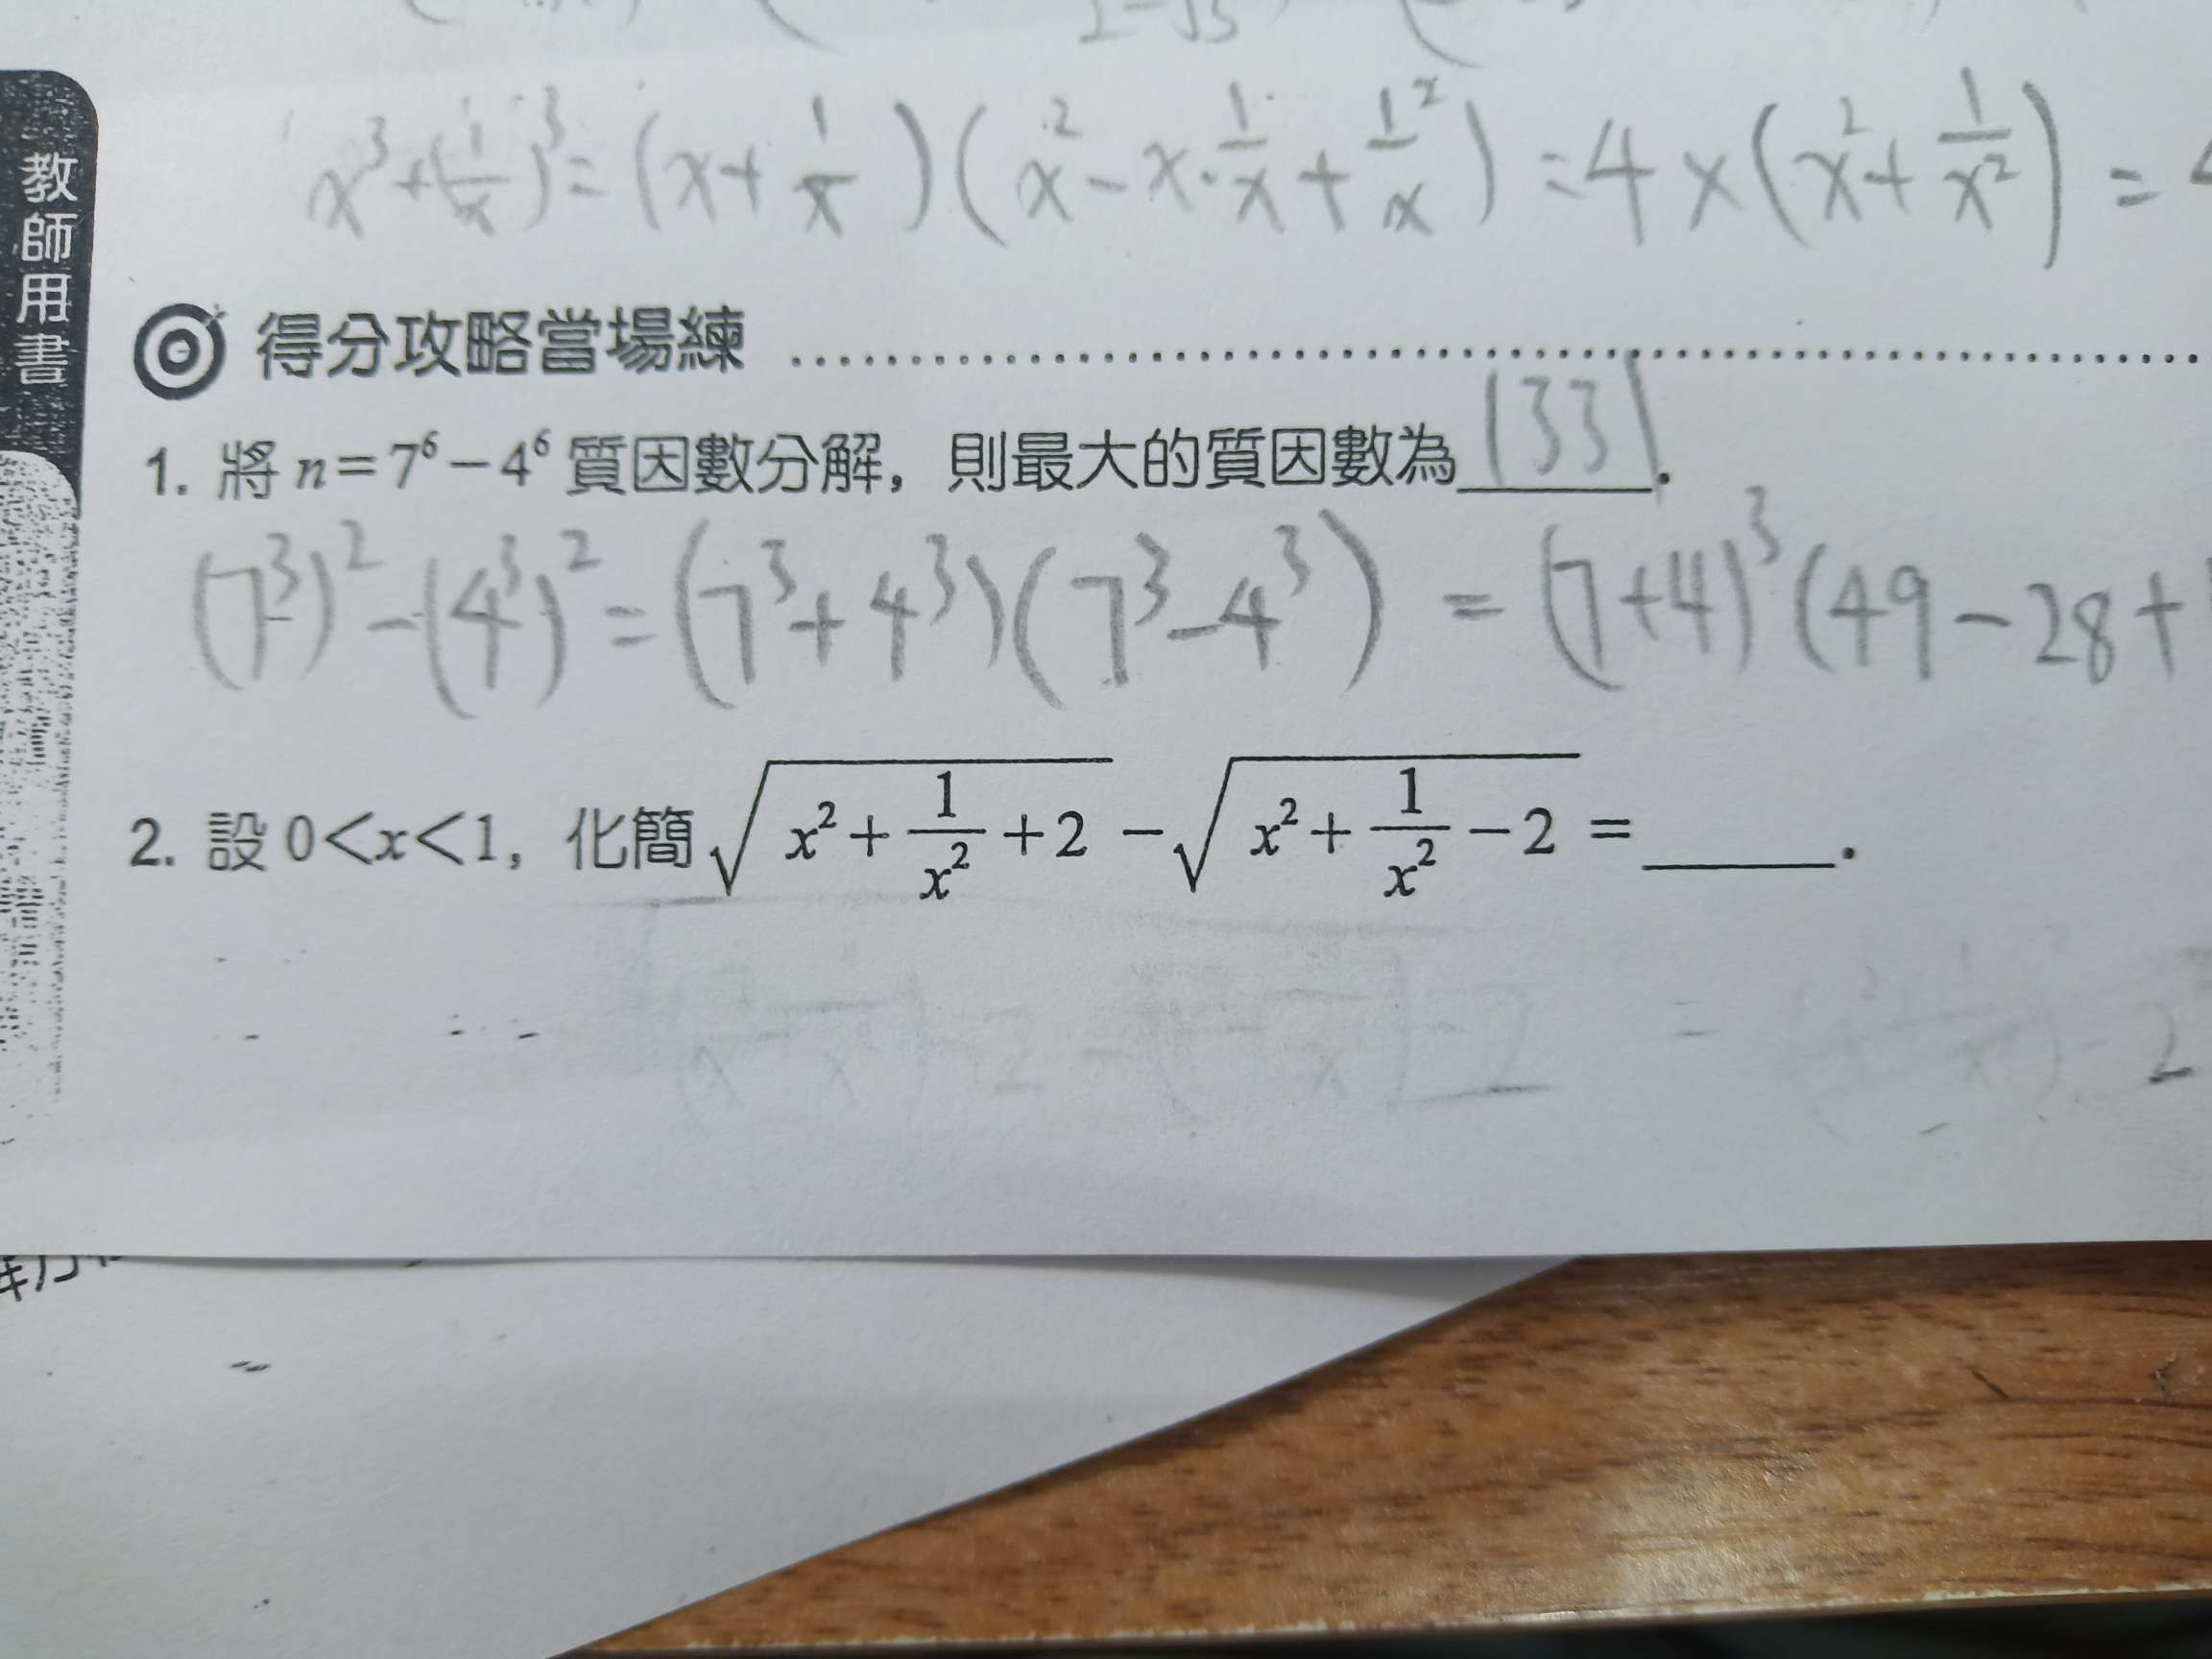 2-√3
x³+(1/x)³=(x+1/x)(x²-x·1/x+1/x²)=4×(x²+1/x²)=
教師用書
得分攻略當場練
1. 將 n=7⁶-4⁶ 質因數分解，則最大的質因數為1331.
(7³)²-(4³)²=(7³+4³)(7³-4³)=(7+4)³(49-28+
2. 設 0<x<1，化簡√(x²+1/x²+2)-√(x²+1/x²-2)=______.